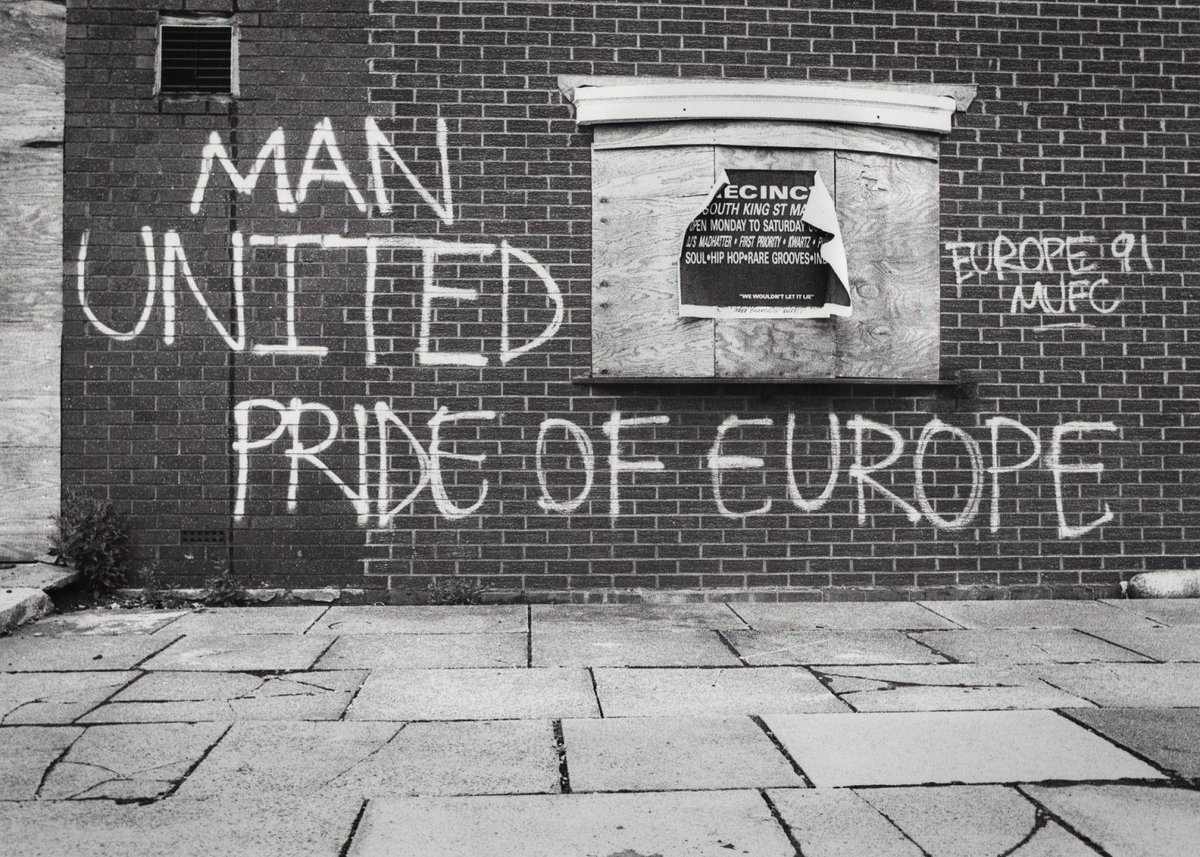 MAN
UNITED
PRIDE OF EUROPE
ECINC
SOUTH KING ST MA
OPEN MONDAY TO SATURDAY
MADHATTER • FIRST PRIORITY • KWARTZ •
SOUL•HIP HOP•RARE GROOVES•IN
"WE WOULDN'T LET IT LIE"
EUROPE 91
MUFC